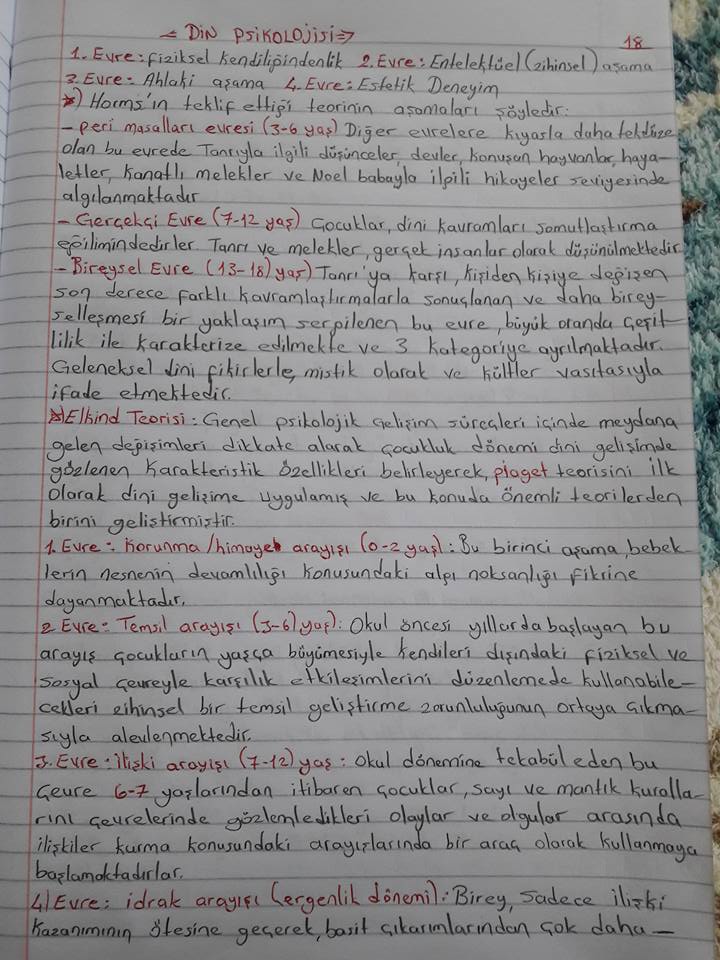 ← DİN PSİKOLOJİSİ →
18
1. Evre: fiziksel kendiliğindenlik 2. Evre: Entelektüel (zihinsel) aşama
3. Evre: Ahlaki aşama 4. Evre: Estetik Deneyim
*) Horms'ın teklif ettiği teorinin aşamaları şöyledir:
- peri masalları evresi (3-6 yaş) Diğer evrelere kıyasla daha tekdüze
olan bu evrede Tanrıyla ilgili düşünceler, devler, konuşan hayvanlar, haya-
letler, kanatlı melekler ve Noel babayla ilgili hikayeler seviyesinde
algılanmaktadır
- Gerçekçi Evre (7-12 yaş) Çocuklar, dini kavramları somutlaştırma
eğilimindedirler. Tanrı ve melekler, gerçek insanlar olarak düşünülmektedir
- Bireysel Evre (13-18) yaş) Tanrı'ya karşı, kişiden kişiye değişen
son derece farklı kavramlaştırmalarla sonuçlanan ve daha birey-
selleşmesi bir yaklaşım serpilenen bu evre, büyük oranda çeşit-
lilik ile karakterize edilmekte ve 3 kategoriye ayrılmaktadır.
Geleneksel dini fikirlerle, mistik olarak ve kültler vasıtasıyla
ifade etmektedir.
*) Elkind Teorisi: Genel psikolojik gelişim süreçleri içinde meydana
gelen değişimleri dikkate alarak çocukluk dönemi dini gelişimde
gözlenen karakteristik özellikleri belirleyerek, piaget teorisini ilk
olarak dini gelişime uygulamış ve bu konuda önemli teorilerden
birini geliştirmiştir.
1. Evre: Korunma/himaye arayışı (0-2 yaş): Bu birinci aşama, bebek-
lerin nesnenin devamlılığı konusundaki algı noksanlığı fikrine
dayanmaktadır.
2 Evre: Temsil arayışı (3-6) yaş): Okul öncesi yıllarda başlayan bu
arayış çocukların yaşça büyümesiyle kendileri dışındaki fiziksel ve
sosyal çevreyle karşılık etkileşimlerini düzenlemede kullanabile-
cekleri zihinsel bir temsil geliştirme zorunluluğunun ortaya çıkma-
sıyla alevlenmektedir.
3. Evre: ilişki arayışı (7-12) yaş: Okul dönemine tekabül eden bu
çevre 6-7 yaşlarından itibaren çocuklar, sayı ve mantık kuralla-
rını çevrelerinde gözlemledikleri olaylar ve olgular arasında
ilişkiler kurma konusundaki arayışlarında bir araç olarak kullanmaya
başlamaktadırlar.
4) Evre: idrak arayışı (ergenlik dönemi): Birey, sadece ilişki
kazanımının ötesine geçerek, basit çıkarımlarından çok daha -